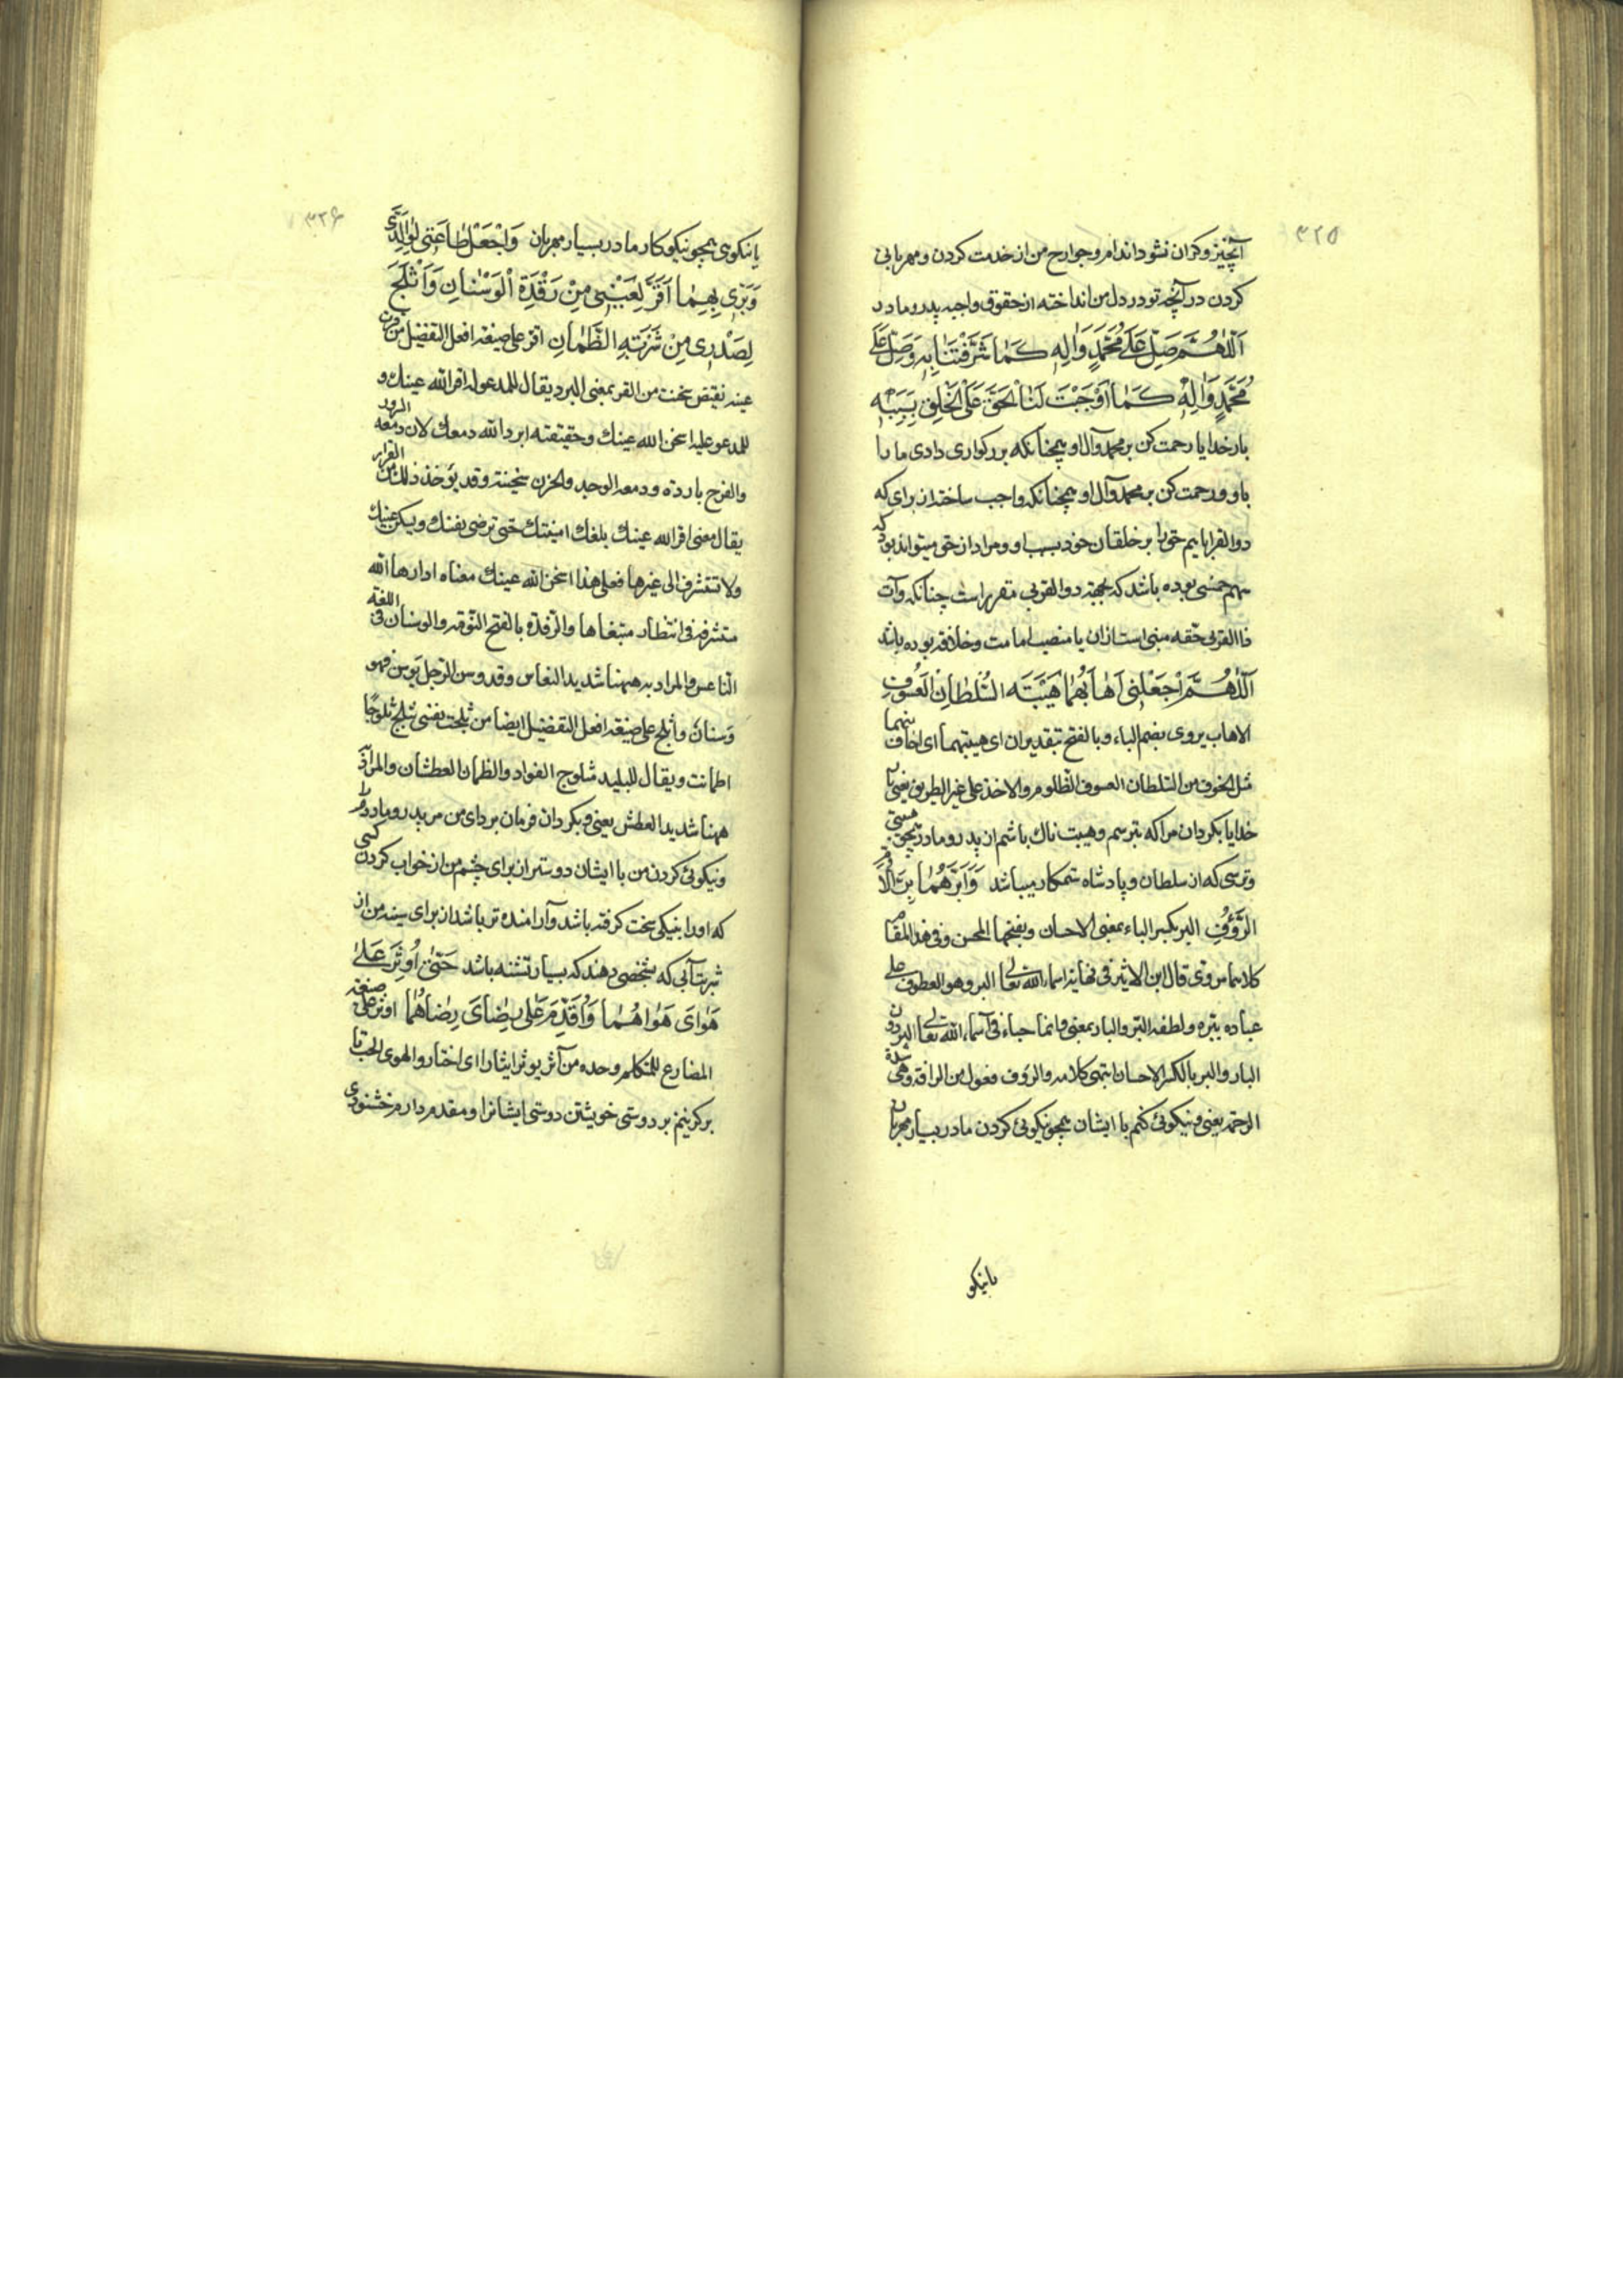 ۳۲۵
آنچیز و کران نشود اندام و جوارح من از خدمت کردن و مهربانی
کردن در آنچه تو در دل من انداخته از حقوق واجبه پدر و مادر
اَللّٰهُمَّ صَلِّ عَلٰى مُحَمَّدٍ وَاٰلِهِ كَمٰا شَرَّفْتَنٰا بِهِ وَصَلِّ عَلٰى
مُحَمَّدٍ وَاٰلِهِ كَمٰا اَوْجَبْتَ لَنٰا الْحَقَّ عَلَى الْخَلْقِ بِسَبَبِهِ
بار خدایا رحمت کن بر محمد و آل او همچنانکه بزرکواری دادی ما را
باو و رحمت کن بر محمد و آل او همچنانکه واجب ساخته از برای که
ذوالقرباییم حق را بر خلقان خود بسبب او و مراد از حق میتواند بود که
سهم خمسی بوده باشد که بجهة ذوالقربی مقرر است چنانکه وآت
ذا القربی حقه مبنی است از ان یا منصب امامت و خلافه بوده باشد
اَللّٰهُمَّ اجْعَلْنِي اَهٰابُهُمٰا هَيْبَتَهِ السُّلْطٰانِ الْعَسُوفِ
الاهاب یروی بضم الباء وبالفتح بتقدیر ان ای هیبتهما ای اخاف منهما
مثل الخوف من السلطان العسوف الظلوم والاخذ علی غیر الطریق یعنی بار
خدایا بکردان مرا که بترسم و هیبت ناک باشم از پدر و مادر همچو هیبتی
و ترسی که از سلطان و پادشاه ستمکار میباشد وَاَبَرَّهُمٰا بِرَّ الْاُمِّ
الرَّؤُفِ البر بکسر الباء بمعنی الاحسان وبفتحها المحسن وفی هذا المقام
کلاهما مروی قال ابن الاثیر فی نهایة اسماء الله تعالی البر وهو العطوف علی
عباده ببره ولطفه البر والبار بمعنی وانما جاء فی اسماء الله تعالی البر دون
البار والبر بالکسر الاحسان انتهی کلامه والرؤف فعول من الرافة وهی شدة
الرحمة یعنی و نیکوئی کنم با ایشان همچو نیکوئی کردن مادر بسیار مهربان
بانیکو
۳۲۶
یا نکوی همچو نیکو کار مادر بسیار مهربان وَاجْعَلْ طٰاعَتِي لِوٰالِدَيَّ
وَبِرِّي بِهِمٰا اَقَرَّ لِعَيْنِي مِنْ رَقْدَةِ الْوَسْنٰانِ وَاَثْلَجَ
لِصَدْرِي مِنْ شَرْبَةِ الظَّمْاٰنِ اقر علی صیغه افعل التفضیل من قرت
عینه نقیض سخنت من القر بمعنی البرد یقال للمدعو له اقر الله عینک و
للمدعو علیه اسخن الله عینک وحقیقته ابرد الله دمعک لان دمعه السرور
والفرح بارده ودمعه الوجد والحزن سخینه وقد یؤخذ ذلک من القرار
یقال معنی اقر الله عینک بلغک امنیتک حتی ترضی نفسک ویسکن عینک
ولا تتشرف الی غیرها فعلی هذا اسخن الله عینک معناه ادارها الله
متشرفه فی انتظار مبتغاها والرقدة بالفتح النومه والوسنان فی اللغة
الناعس والمراد به ههنا شدید النعاس وقد وسن الرجل یوسن فهو
وسنان واثلج علی صیغه افعل التفضیل ایضا من ثلجت نفسی تثلج ثلوجا
اطمانت ویقال للبلید مثلوج الفواد والظمان العطشان والمراد
ههنا شدید العطش یعنی و بکردان فرمان برداری من مر پدر و مادر را
و نیکوئی کردن من با ایشان دوستر از برای چشم من از خواب کردن کسی
که او را پنیکی سخت کرفته باشد و آرامنده تر باشد از برای سینه من از
شربت آبی که شخصی دهند که بسیار تشنه باشد حَتّٰى اُوثِرَ عَلٰى
هَوٰايَ هَوٰاهُمٰا وَاُقَدِّمَ عَلٰى رِضٰايَ رِضٰاهُمٰا اوثر علی صیغه
المضارع للمتکلم وحده من آثر یوثر ایثارا ای اختار والهوی الحب تا
برکزینم بر دوستی خویشتن دوستی ایشانرا و مقدم دارم خشنودی